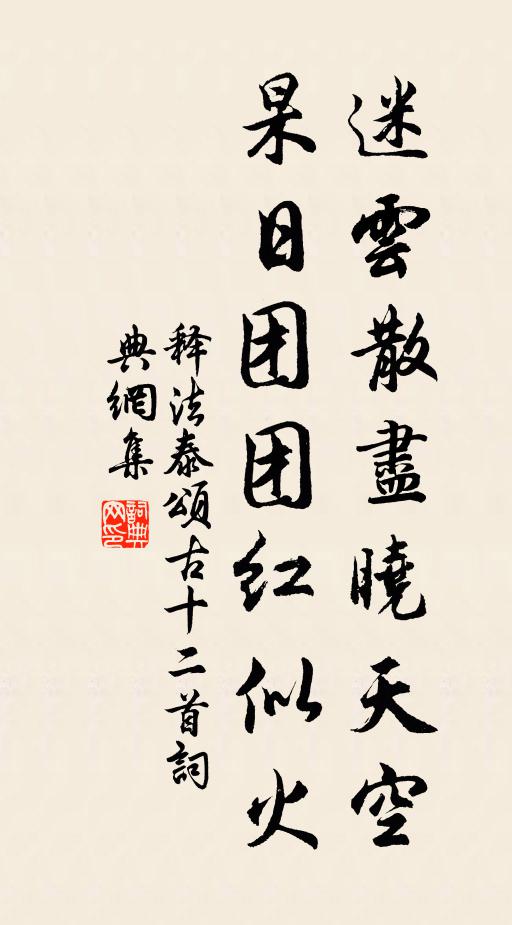 迷雲散盡曉天空
杲日团团红似火
释法泰頌古十二首詞
典網集
詞典
网印